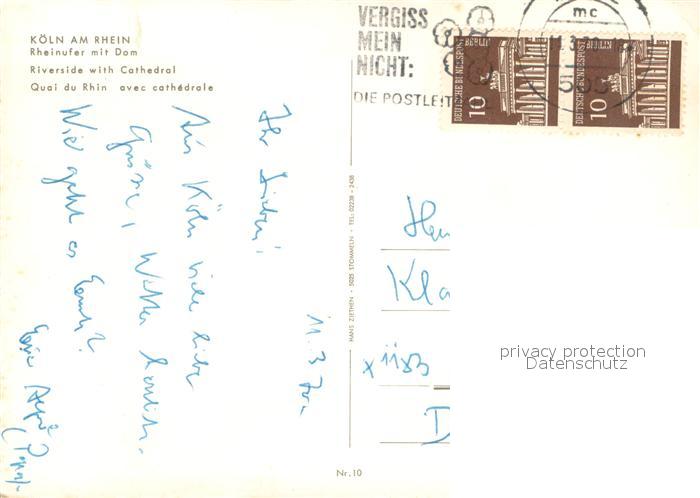 KÖLN AM RHEIN
Rheinufer mit Dom
Riverside with Cathedral
Quai du Rhin avec cathédrale
VERGISS
MEIN
NICHT:
DIE POSTLEIT
mc
DEUTSCHE BUNDESPOST
BERLIN
10
DEUTSCHE BUNDESPOST
BERLIN
10
11. 3.
Ihr Lieben!
Aus Köln viele liebe
Grüsse, Wetter herrlich.
Wie geht es
Eure
HANS ZIETHEN · 5025 STOMMELN · TEL. 02238 - 2438
Kla
D
privacy protection
Datenschutz
Nr. 10